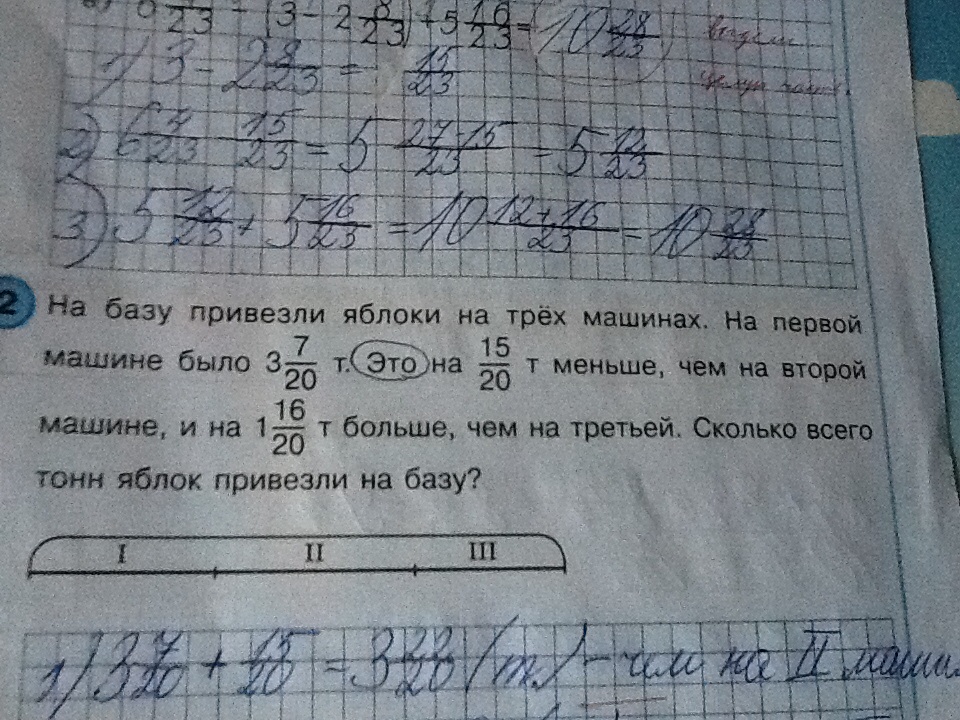 23 - (3 - 2 8/23) + 5 16/23 = (10 28/23)
1) 3 - 2 8/23 = 15/23
2) 6 4/23 - 15/23 = 5 27-15/23 = 5 12/23
3) 5 12/23 + 5 16/23 = 10 12+16/23 = 10 28/23
2 На базу привезли яблоки на трёх машинах. На первой
машине было 3 7/20 т. Это на 15/20 т меньше, чем на второй
машине, и на 1 16/20 т больше, чем на третьей. Сколько всего
тонн яблок привезли на базу?
I II III
1) 3 7/20 + 15/20 = 3 22/20 (т) - чем на II маши